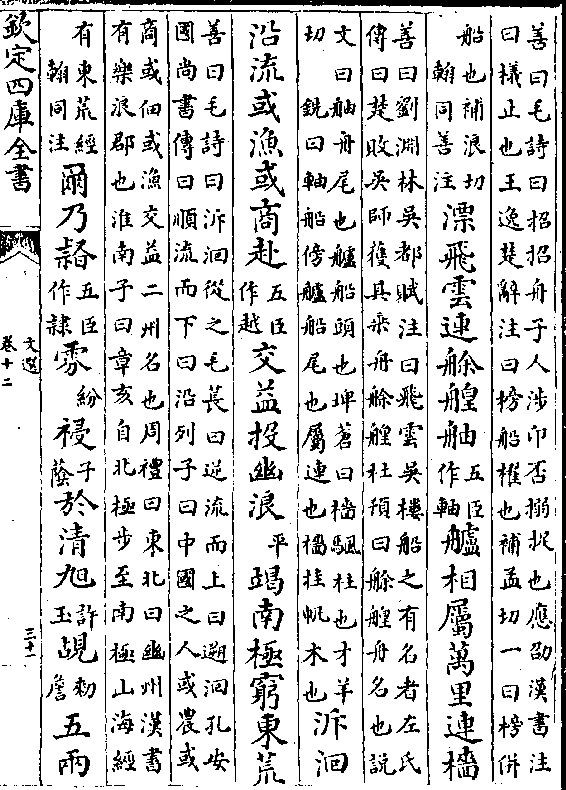 善曰毛詩曰招招舟子人涉卬否搦捉也應劭漢書注
曰檥止也王逸楚辭注曰榜船櫂也補孟切一曰榜併
船也補浪切
翰同善注
漂飛雲連艅艎舳五臣作軸艫相屬萬里連檣
善曰劉淵林吳都賦注曰飛雲吳樓船之有名者左氏
傳曰楚敗吳師獲其乘舟艅艎杜預曰艅艎舟名也說
文曰舳舟尾也艫船頭也埤蒼曰檣颿柱也才羊
切 銑曰軸船傍艫船尾也屬連也檣挂帆木也
泝洄
沿流或漁或商赴五臣作越交益投幽浪平竭南極窮東荒
善曰毛詩曰泝洄從之毛萇曰逆流而上曰遡洄孔安
國尚書傳曰順流而下曰沿列子曰中國之人或農或
商或佃或漁交益二州名也周禮曰東北曰幽州漢書
有樂浪郡也淮南子曰章亥自北極步至南極山海經
有東荒經
翰同注
爾乃五臣作隸雰紛祲子蔭於清旭許玉覘勑詹五兩
欽定四庫全書
文選
卷十二
三十一